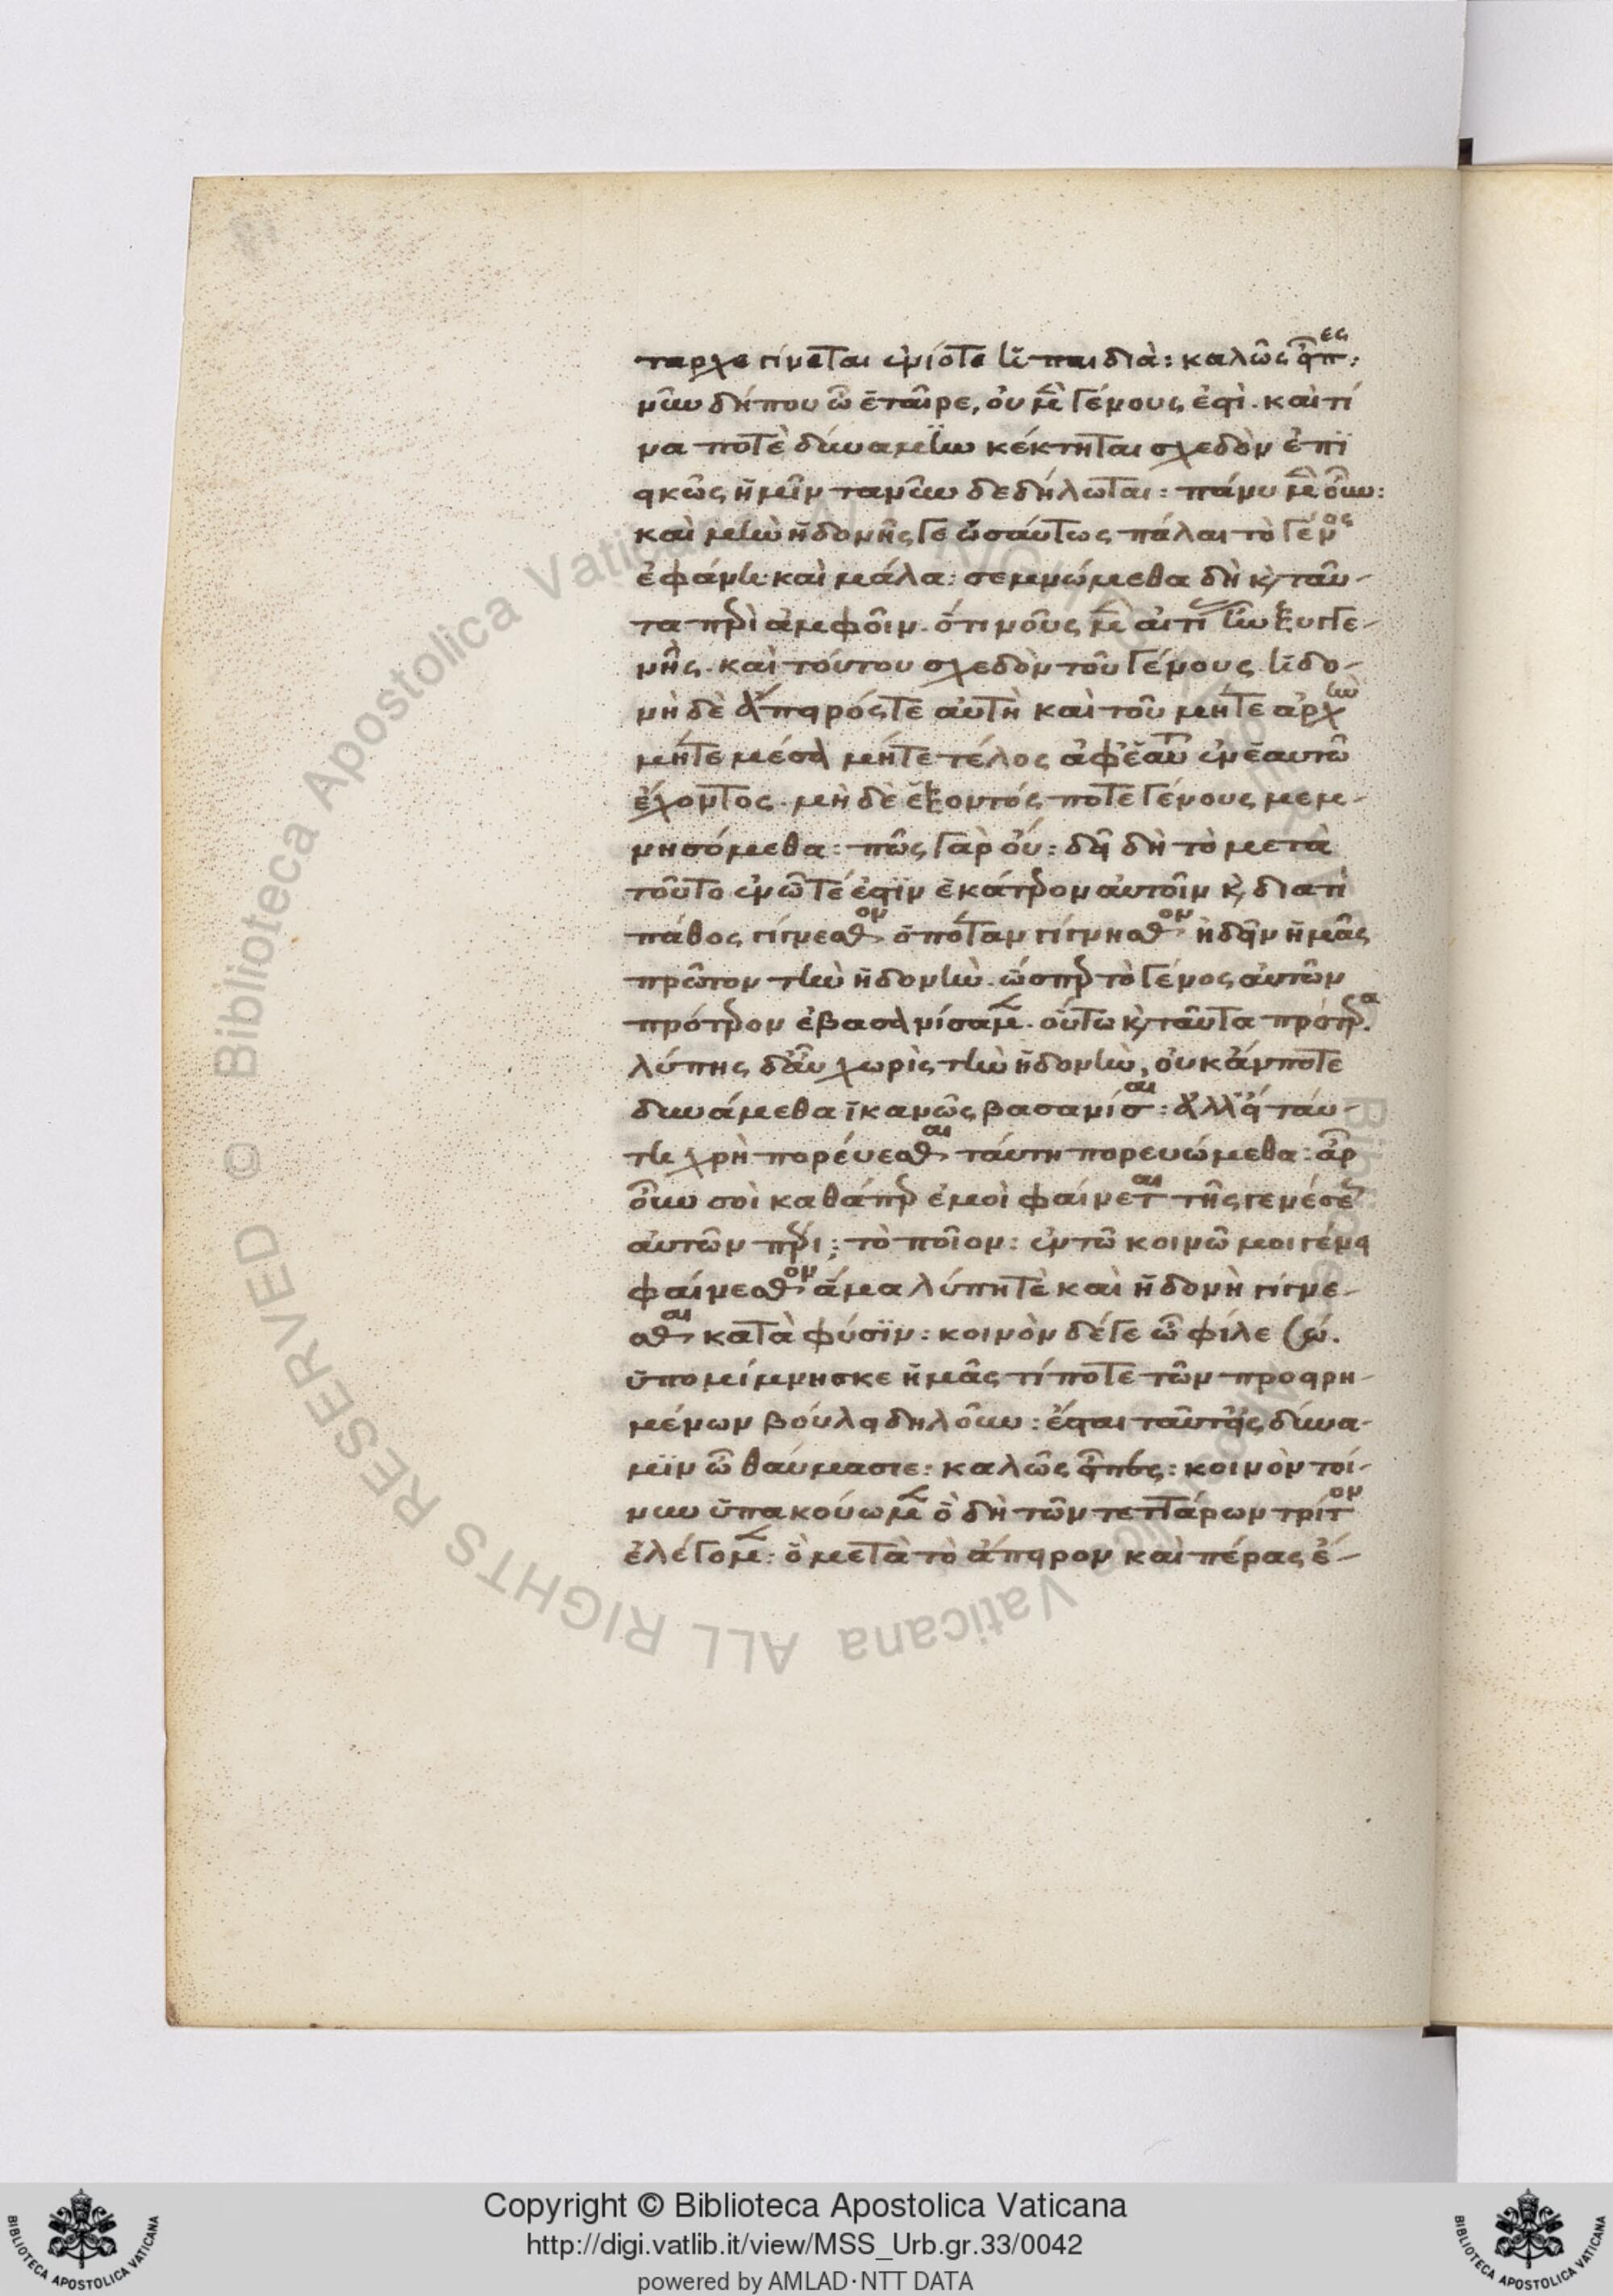 ταρχε γίνεται ἐνίοτε ἡ παιδιὰ: καλῶς εἶπες:
νῦν δήπου ὦ ἑταῖρε, οὗ μὲν γένους ἐστὶ. καὶ τί
να ποτὲ δύναμιν κέκτηται σχεδὸν ἐπι
εικῶς ἡμῖν τανῦν δεδήλωται: πάνυ μὲν οὖν:
καὶ μὴν ἡδονῆς γε ὡσαύτως πάλαι τὸ γένος
ἐφάνη: καὶ μάλα: μεμνώμεθα δὴ καὶ ταῦ-
τα περὶ ἀμφοῖν. ὅτι νοῦς μὲν αἰτί ἦν ξυγγε-
νὴς. καὶ τούτου σχεδὸν τοῦ γένους. ἡδο-
νὴ δὲ ἄπειρός τε αὐτὴ καὶ τοῦ μήτε ἀρχὴν
μήτε μέσα μήτε τέλος ἀφ' ἑαυτοῦ ἐν ἑαυτῶ
ἔχοντος. μὴ δὲ ἕξοντός ποτε γένους μεμ-
νησόμεθα: πῶς γὰρ οὔ: δεῖ δὴ τὸ μετὰ
τοῦτο ἐν ὧ τέ ἐστιν ἑκάτερον αὐτοῖν καὶ διατί
πάθος γίγνεσθον ὁπόταν γίγνησθον ἰδεῖν ἡμᾶς
πρῶτον τὴν ἡδονὴν. ὥσπερ τὸ γένος αὐτῶν
πρότερον ἐβασανίσαμεν. οὕτω καὶ ταῦτα πρότερα.
λύπης δ' αὖ χωρὶς τὴν ἡδονὴν, οὐκ ἄν ποτε
δυνάμεθα ἱκανῶς βασανίσαι: ἀλλ' εἰ ταύ-
τη χρὴ πορεύεσθαι ταύτη πορευώμεθα: ἆρ
οὖν σοὶ καθάπερ ἐμοὶ φαίνεται τῆς γενέσεως
αὐτῶν πέρι; τὸ ποῖον: ἐν τῶ κοινῶ μοι γένει
φαίνεσθον ἅμα λύπη τὲ καὶ ἡδονὴ γίγνε-
σθαι κατὰ φύσιν: κοινὸν δέ γε ὦ φίλε Σώ.
ὑπομίμνησκε ἡμᾶς τί ποτε τῶν προειρη-
μένων βούλει δηλοῦν: ἔσται ταῦτ' εἰς δύνα-
μιν ὦ θαυμάσιε: καλῶς εἶπες: κοινὸν τοί-
νυν ὑπακούωμεν ὃ δὴ τῶν τεττάρων τρίτον
ἐλέγομεν: ὃ μετὰ τὸ ἄπειρον καὶ πέρας ἔ-
Copyright © Biblioteca Apostolica Vaticana
http://digi.vatlib.it/view/MSS_Urb.gr.33/0042
powered by AMLAD·NTT DATA